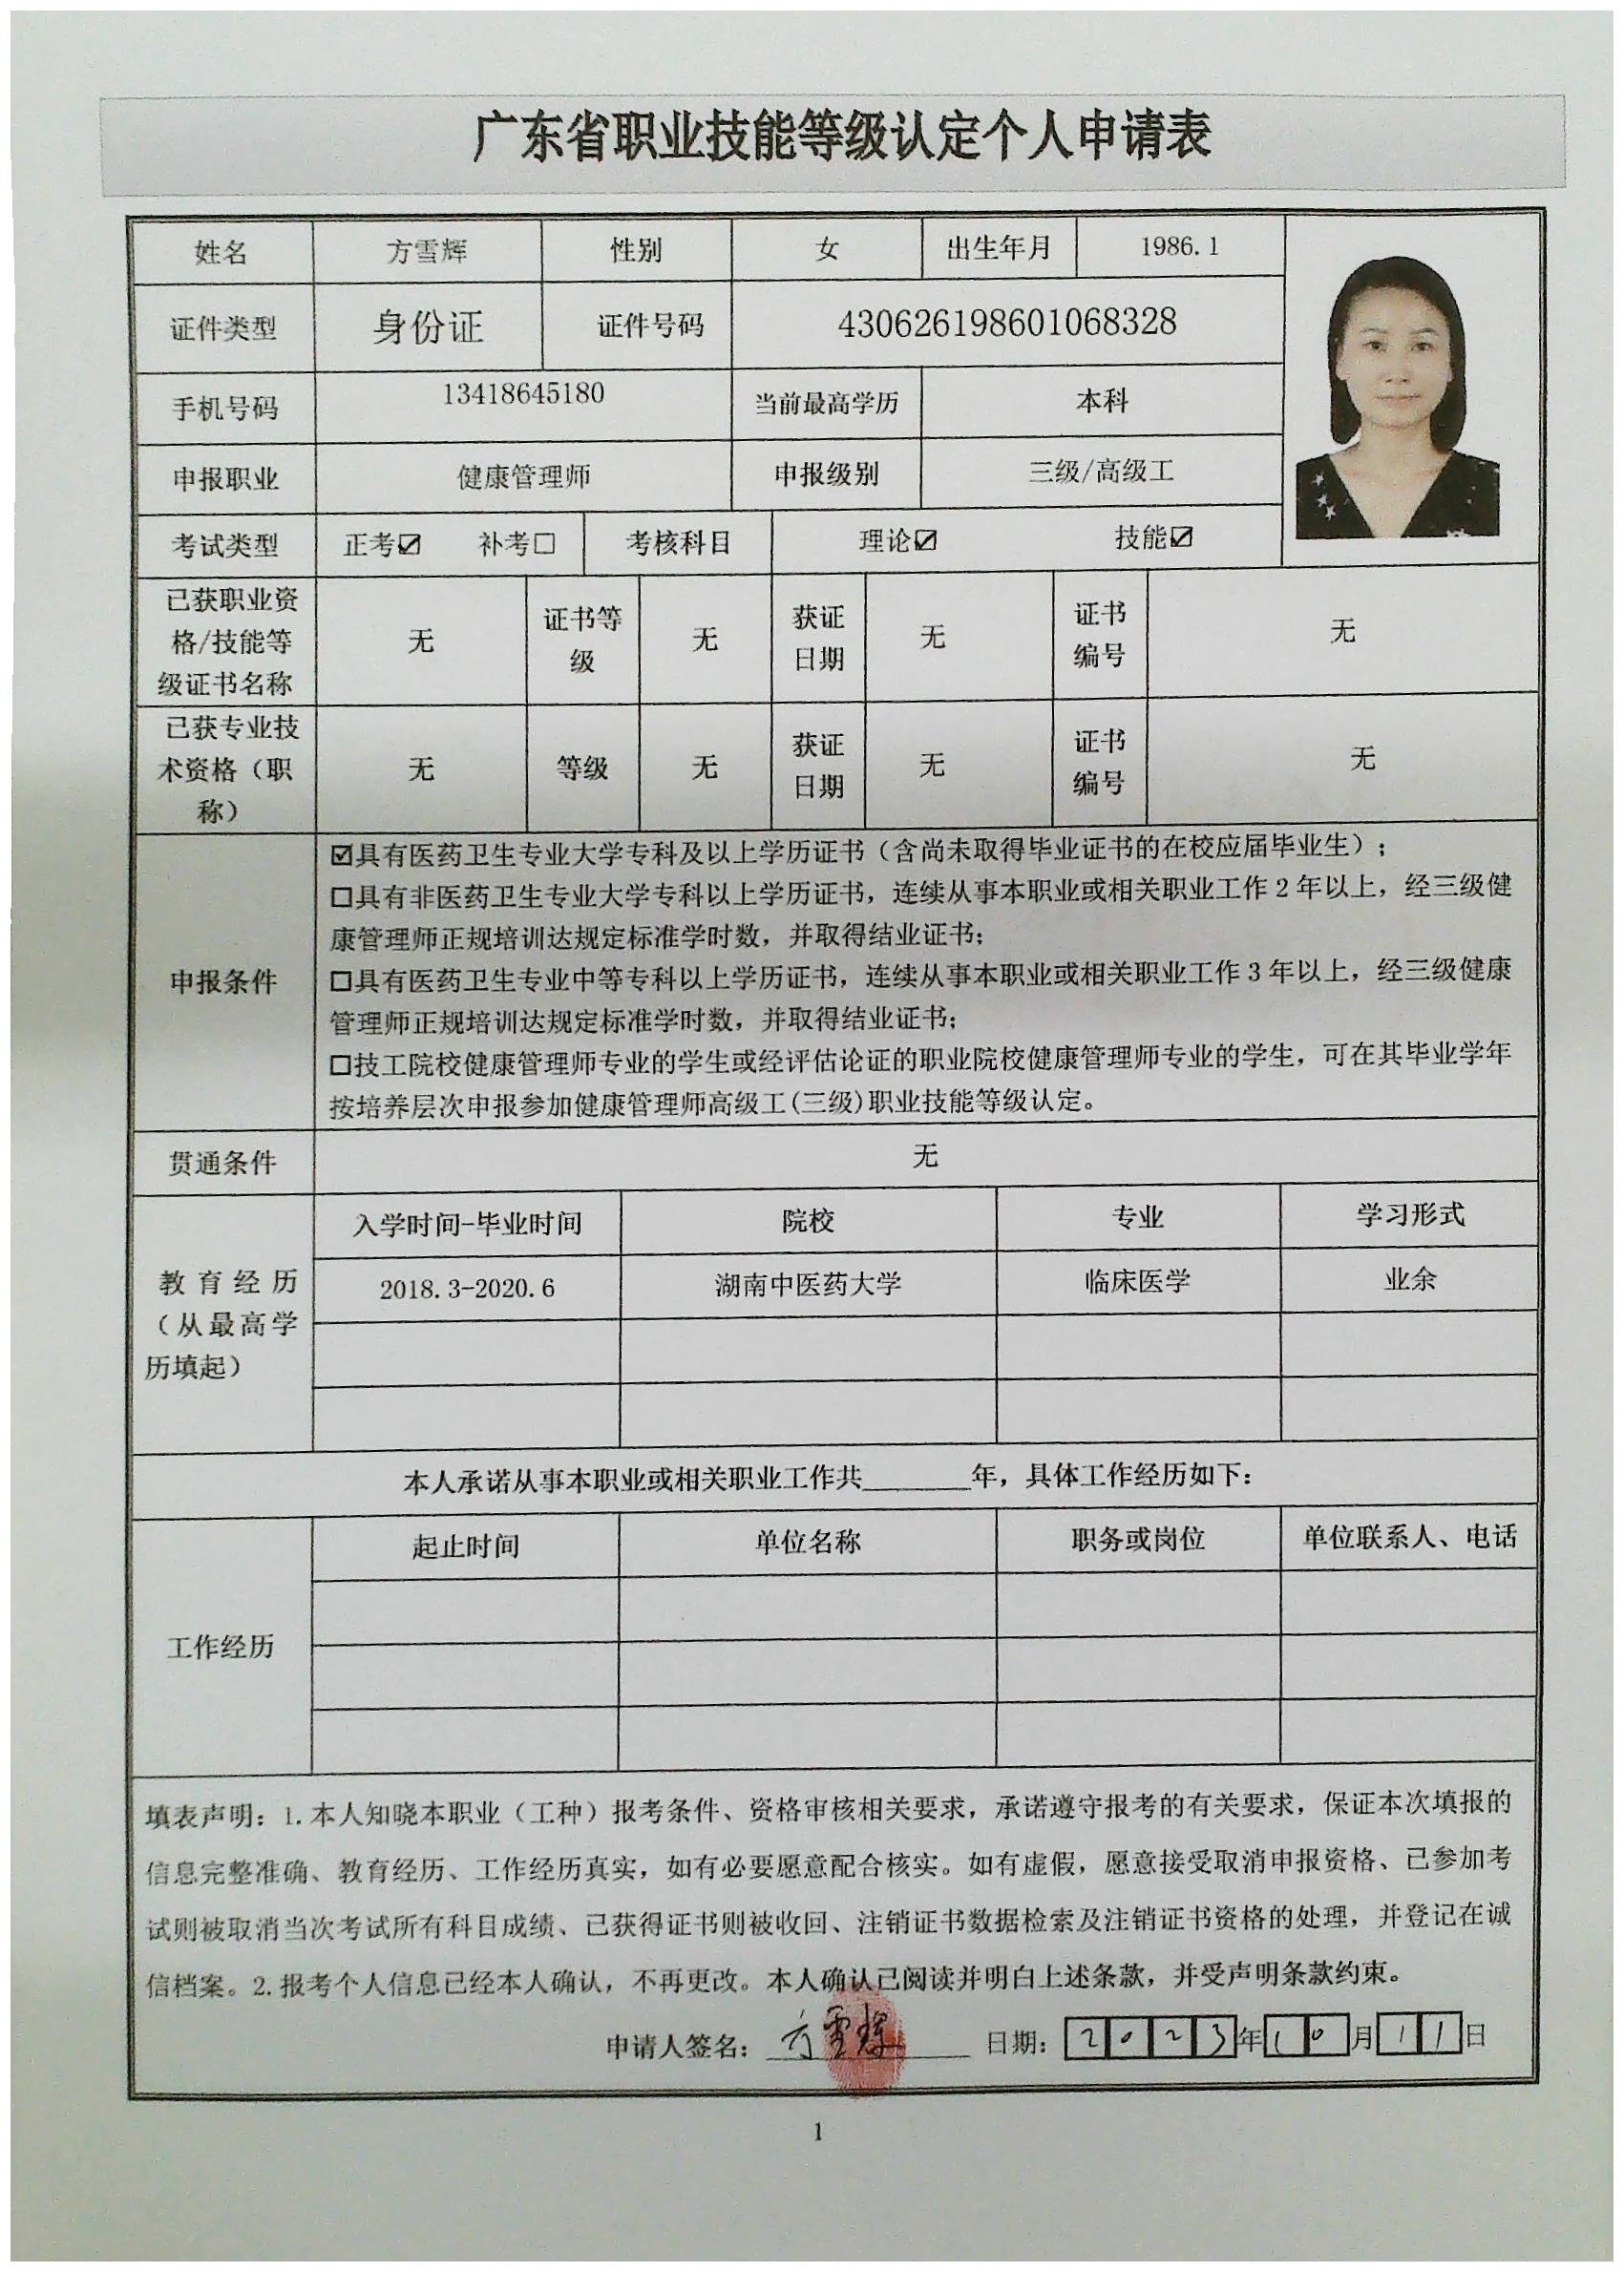 广东省职业技能等级认定个人申请表
姓名 方雪辉 性别 女 出生年月 1986.1
证件类型 身份证 证件号码 430626198601068328
手机号码 13418645180 当前最高学历 本科
申报职业 健康管理师 申报级别 三级/高级工
考试类型 正考☑ 补考☐ 考核科目 理论☑ 技能☑
已获职业资
格/技能等
级证书名称
无
证书等
级
无
获证
日期
无
证书
编号
无
已获专业技
术资格（职
称）
无
等级
无
获证
日期
无
证书
编号
无
申报条件
☑具有医药卫生专业大学专科及以上学历证书（含尚未取得毕业证书的在校应届毕业生）；
☐具有非医药卫生专业大学专科以上学历证书，连续从事本职业或相关职业工作2年以上，经三级健
康管理师正规培训达规定标准学时数，并取得结业证书；
☐具有医药卫生专业中等专科以上学历证书，连续从事本职业或相关职业工作3年以上，经三级健康
管理师正规培训达规定标准学时数，并取得结业证书；
☐技工院校健康管理师专业的学生或经评估论证的职业院校健康管理师专业的学生，可在其毕业学年
按培养层次申报参加健康管理师高级工(三级)职业技能等级认定。
贯通条件 无
教育经历
（从最高学
历填起）
入学时间-毕业时间 院校 专业 学习形式
2018.3-2020.6 湖南中医药大学 临床医学 业余
本人承诺从事本职业或相关职业工作共________年，具体工作经历如下：
工作经历
起止时间 单位名称 职务或岗位 单位联系人、电话
填表声明：1.本人知晓本职业（工种）报考条件、资格审核相关要求，承诺遵守报考的有关要求，保证本次填报的
信息完整准确、教育经历、工作经历真实，如有必要愿意配合核实。如有虚假，愿意接受取消申报资格、已参加考
试则被取消当次考试所有科目成绩、已获得证书则被收回、注销证书数据检索及注销证书资格的处理，并登记在诚
信档案。2.报考个人信息已经本人确认，不再更改。本人确认已阅读并明白上述条款，并受声明条款约束。
申请人签名：方雪辉 日期：2023年10月11日
1